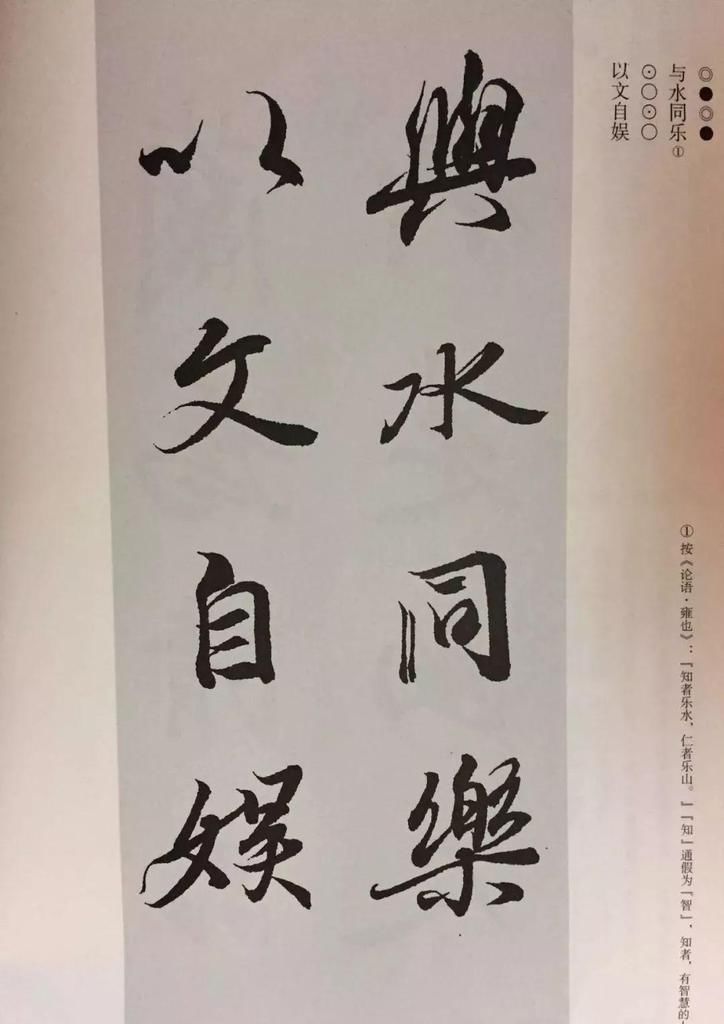 ◎●◎●
与水同乐①
⊙○⊙○
以文自娱
與水同樂
以文自娱
①按《论语·雍也》：「知者乐水，仁者乐山。」「知」通假为「智」，知者，有智慧的